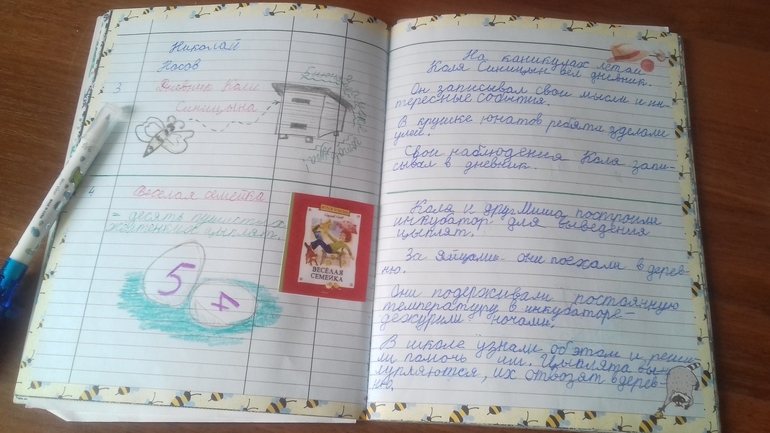 Николай
Носов
3
Дневник Коли
Синицына
4
Весёлая семейка
= десять пушистых
желтеньких цыплят.
5
4
ВЕСЁЛАЯ
СЕМЕЙКА
На каникулах летом
Коля Синицын вёл дневник.
Он записывал свои мысли и ин-
тересные события.
В кружке юнатов ребята зделали
улей.
Свои наблюдения Коля запи-
сывал в дневник.
Коля и друг Миша построили
инкубатор для выведения
цыплят.
За яйцами они поехали в дерев-
ню.
Они подерживали постоянную
температуру в инкубаторе-
дежурили ночами.
В школе узнали об этом и реши-
ли помочь им. Цыплята вы
лупляются, их отвозят в дерев-
ню.